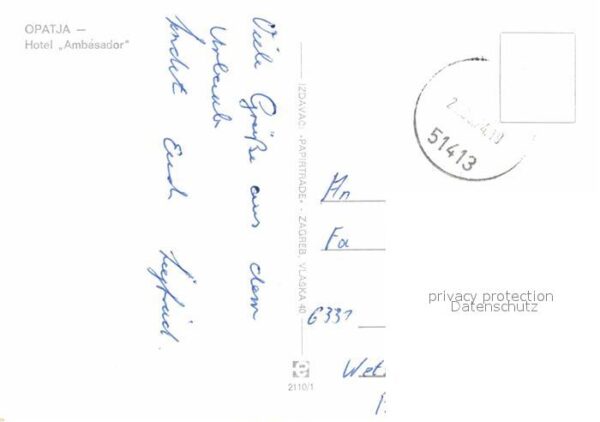 OPATJA —
Hotel „Ambasador"
Viele Grüße aus dem
Urlaub
sendet Euch Siegfried.
IZDAVAČ: »PAPIRTRADE« - ZAGREB, VLAŠKA 40
2110/1
51413
An
Fa
6331
privacy protection
Datenschutz